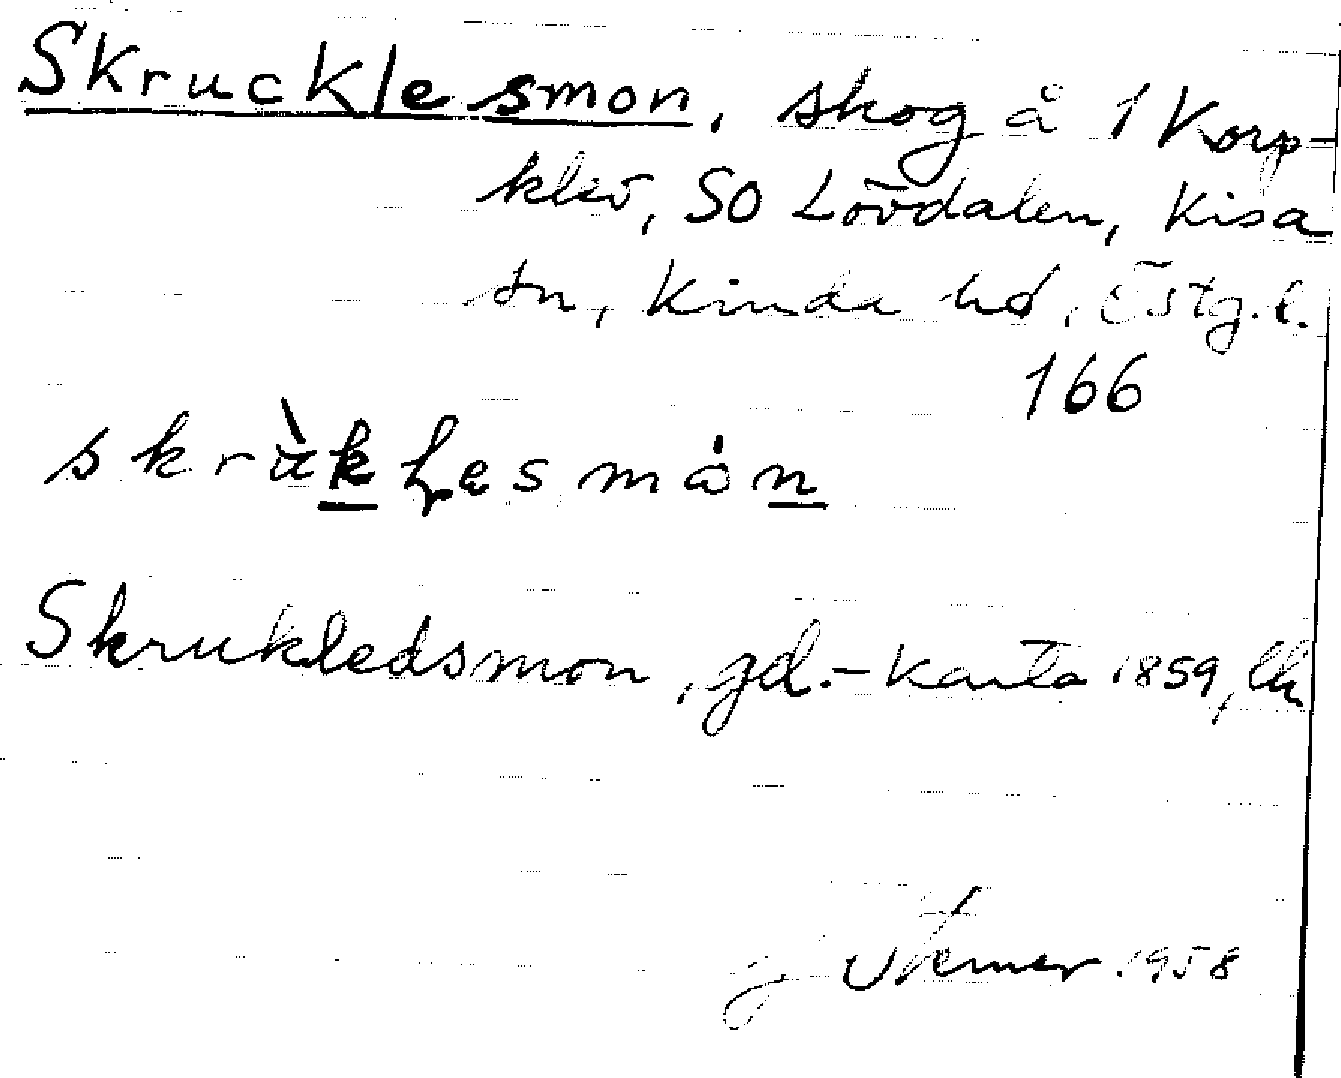 Skrucklesmon, skog å 1 Korp-
klev, SO Lövdalen, Kisa
sn, Kinda hd, Östg.l.
166
skrùklesmån
Skrukledsmon, gd.-karta 1859, lk
1958